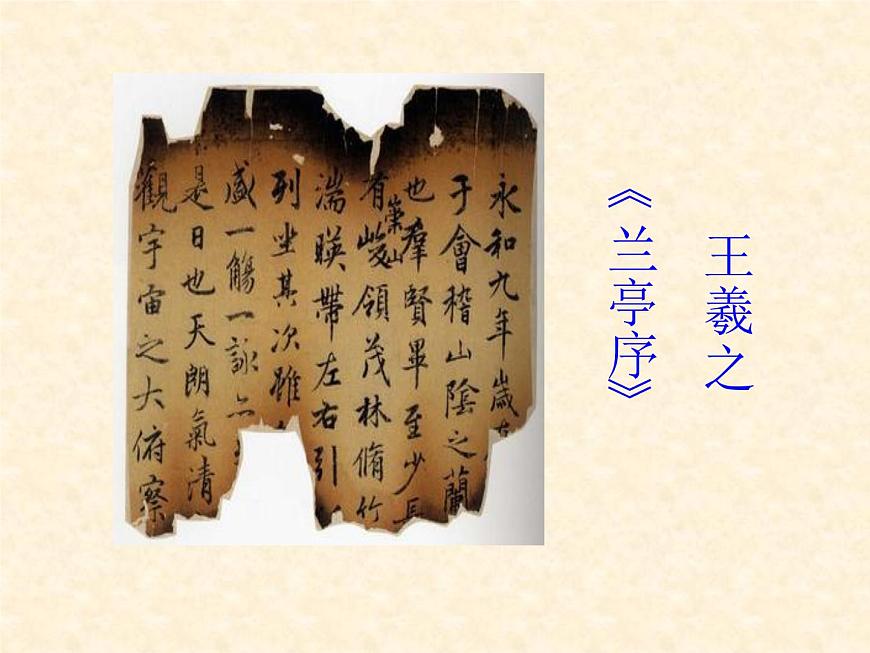 王羲之
《兰亭序》
永和九年歲
于會稽山陰之蘭
也羣賢畢至少長
有崇山峻領茂林脩竹
湍暎帶左右引
列坐其次雖
盛一觴一詠
是日也天朗氣清
觀宇宙之大俯察